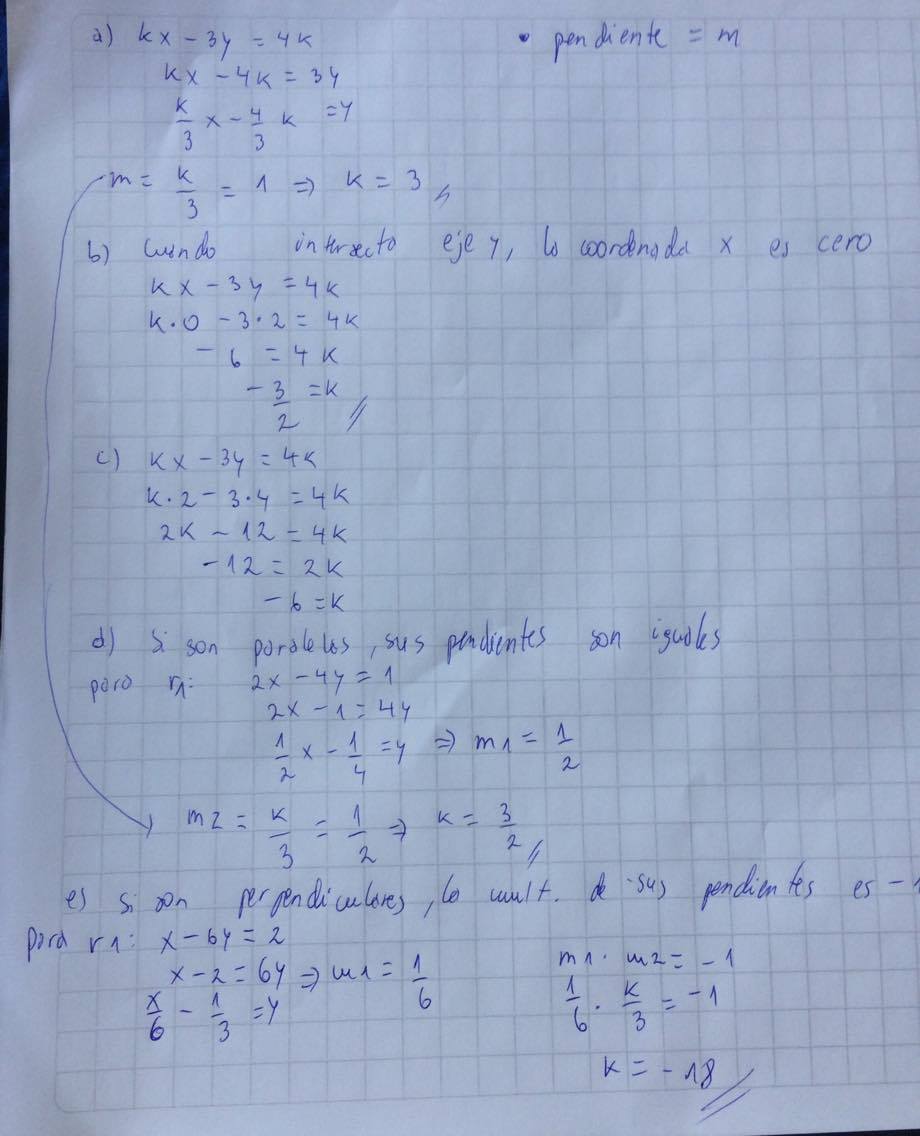 a) kx - 3y = 4k
• pendiente = m
kx - 4k = 3y
k/3 x - 4/3 k = y
m = k/3 = 1 ⇒ k = 3
b) Cuando intersecta eje y, la coordenada x es cero
kx - 3y = 4k
k·0 - 3·2 = 4k
-6 = 4k
-3/2 = k
c) kx - 3y = 4k
k·2 - 3·4 = 4k
2k - 12 = 4k
-12 = 2k
-6 = k
d) Si son paralelas, sus pendientes son iguales
para r1: 2x - 4y = 1
2x - 1 = 4y
1/2 x - 1/4 = y ⇒ m1 = 1/2
m2 = k/3 = 1/2 ⇒ k = 3/2
e) Si son perpendiculares, la mult. de sus pendientes es -1
para r1: x - 6y = 2
x - 2 = 6y ⇒ m1 = 1/6
x/6 - 1/3 = y
m1 · m2 = -1
1/6 · k/3 = -1
k = -18